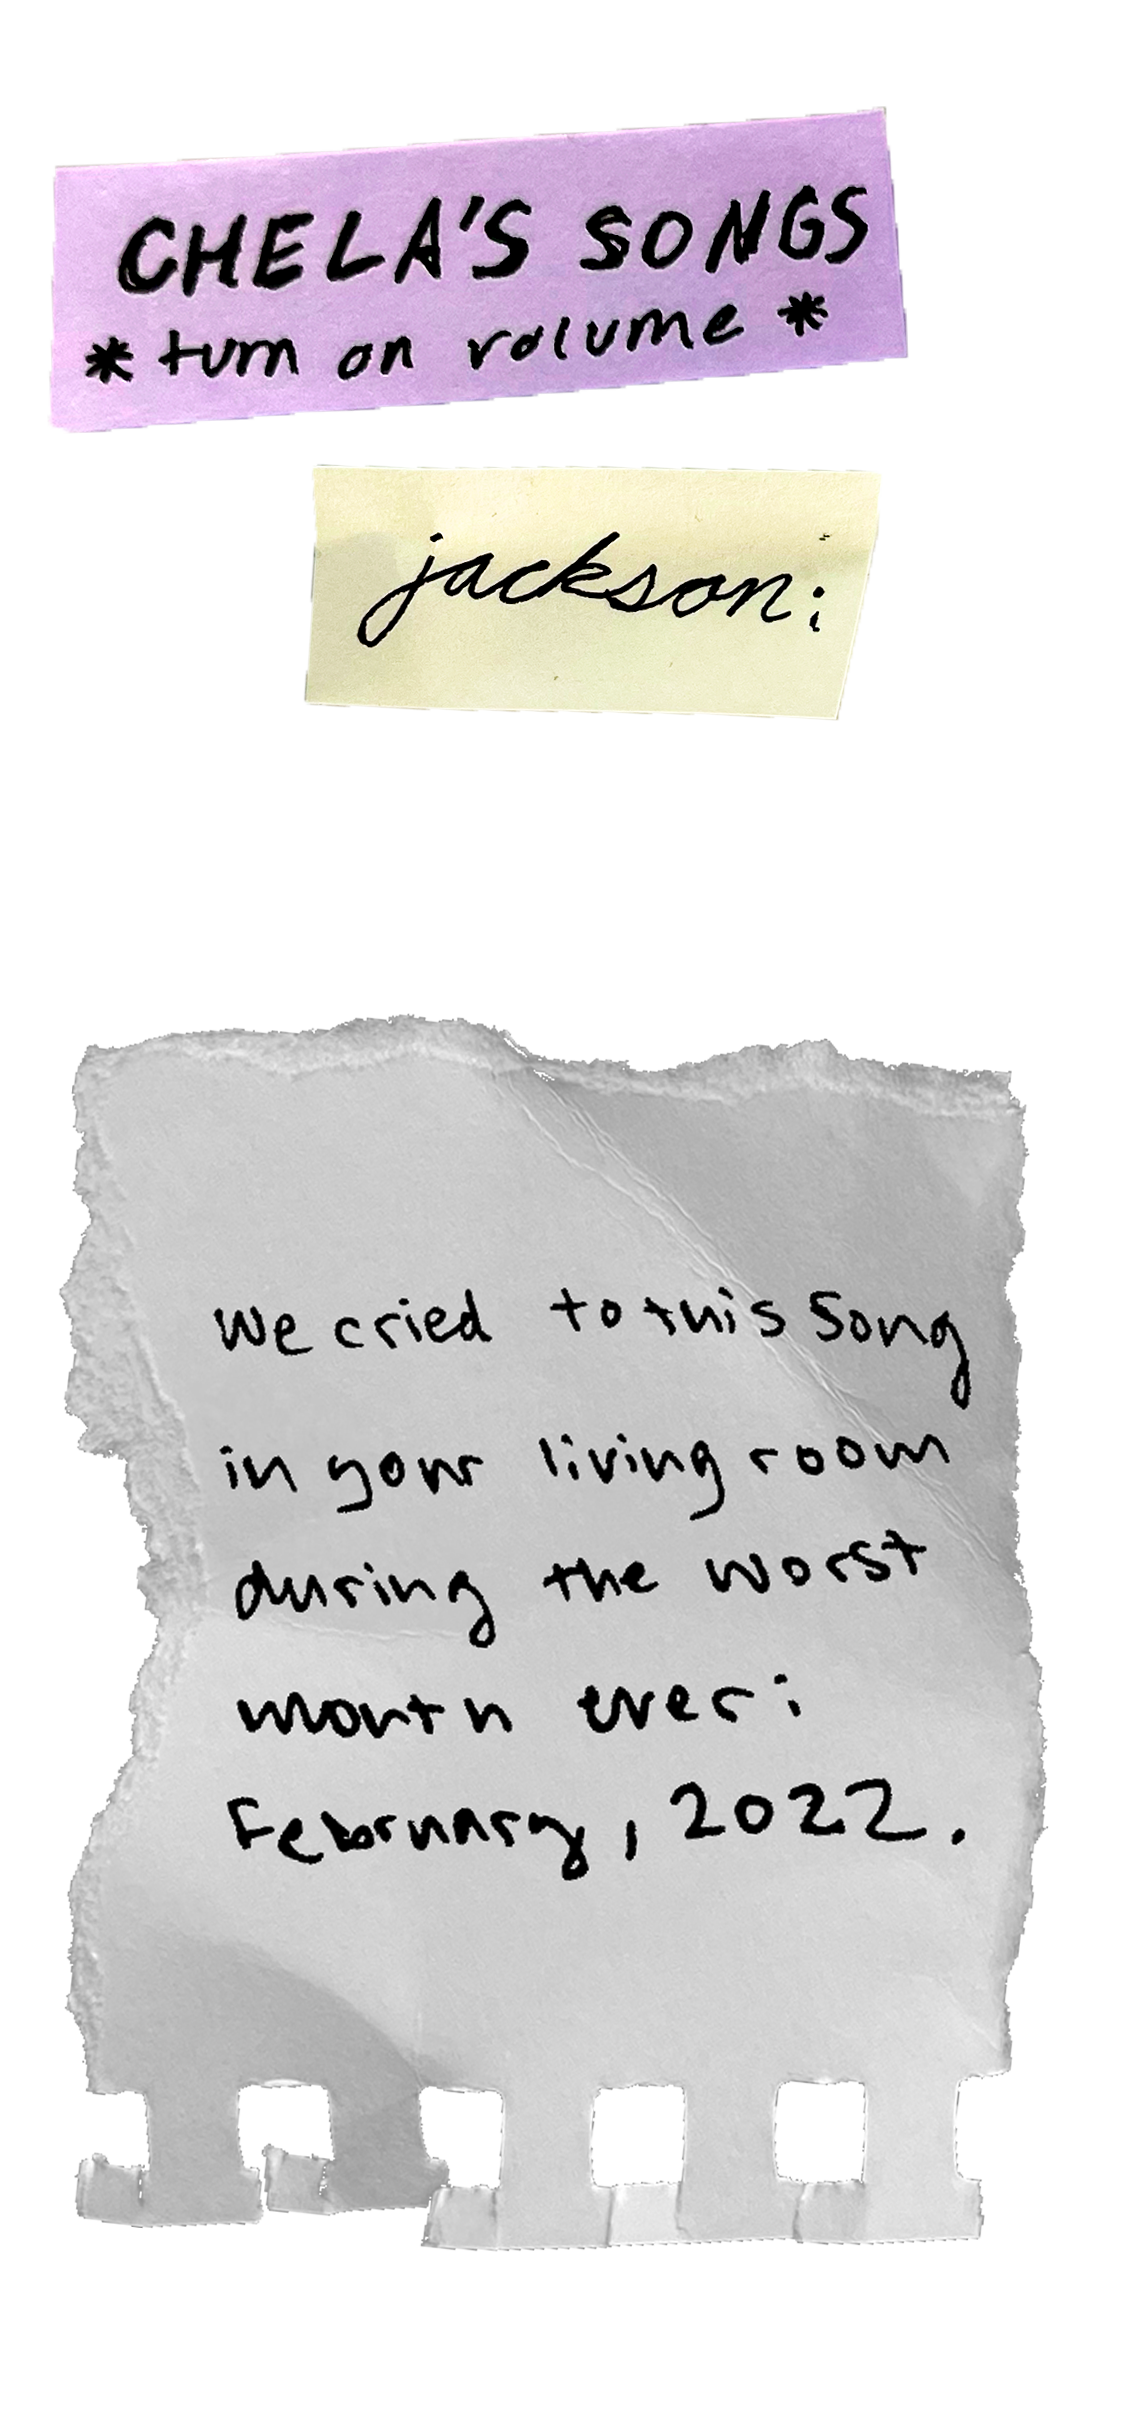 CHELA'S SONGS
* turn on volume *
jackson:
We cried to this song
in your living room
during the worst
month ever:
February, 2022.